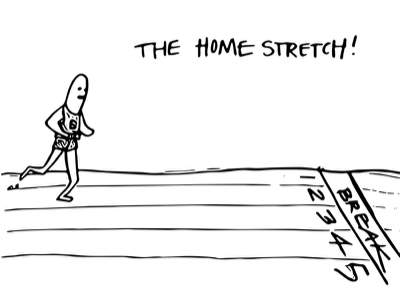 THE HOME STRETCH!
6
1
2
3
4
5
BREAK